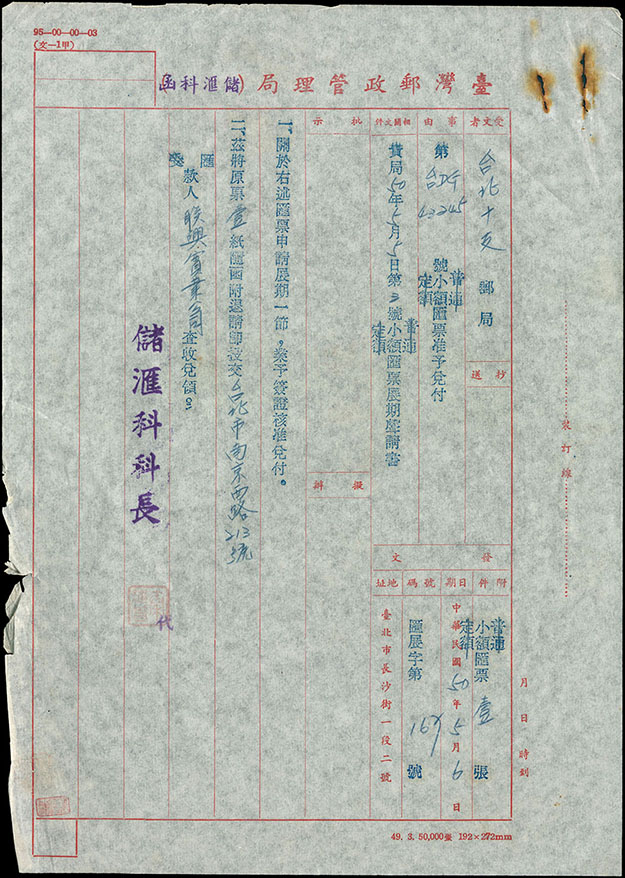 95—00—00—03
(文—1甲)
臺灣郵政管理局(儲滙科函)
受文者
台北十支郵局
抄送
事由
第台DG43245號普通定額小額匯票准予兌付
相關文件
貴局50年5月5日第3號普通定額小額匯票展期聲請書
批示
擬辦
發文
附件
普通定額小額匯票壹張
日期
中華民國50年5月6日
號碼
匯展字第167號
地址
臺北市長沙街一段二號
一、關於右述匯票申請展期一節，業予簽證核准兌付。
二、茲將原票壹紙隨函附退請即設交台北市南京西路213號
匯發款人聯興實業公司查收兌領。
儲滙科科長
代
裝訂線
月日時刻
49. 3. 50,000張 192×272mm